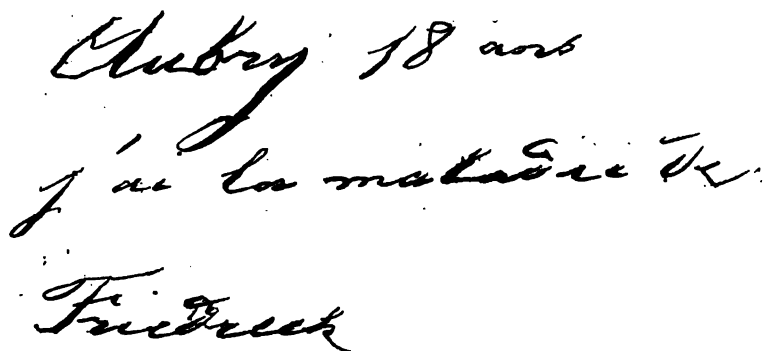 Aubry 18 ans
j'ai la maladie de
Friedreich